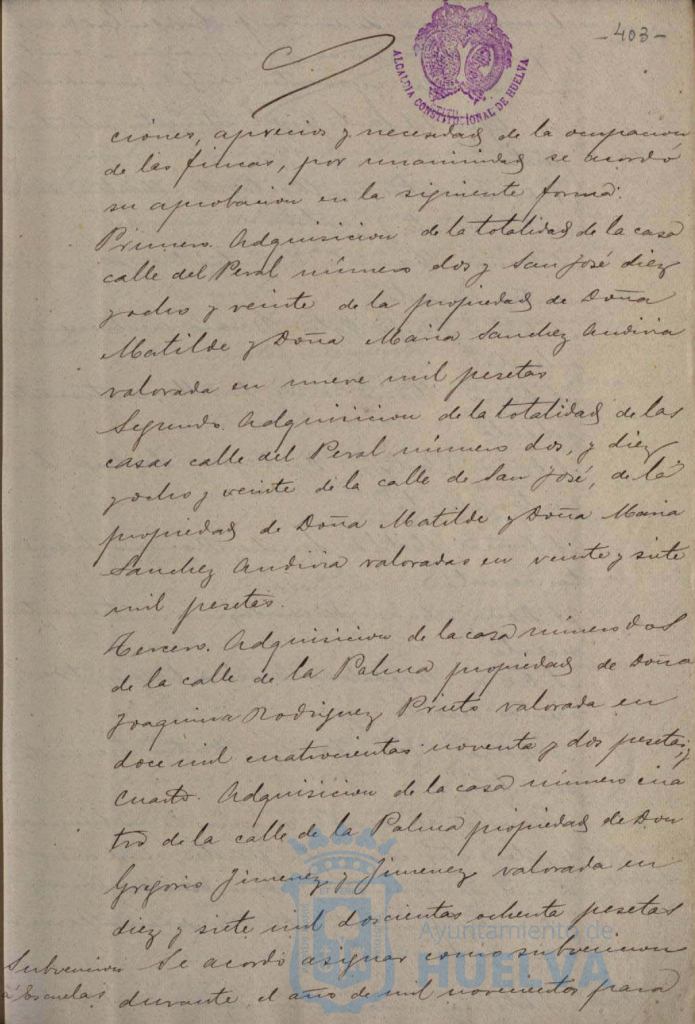 -403-
ALCALDIA CONSTITUCIONAL DE HUELVA
ciones, aprecios y necesidad de la ocupacion
de las fincas, por unanimidad se acordó
su aprobacion en la siguiente forma:
Primero. Adquisicion de la totalidad de la casa
calle del Peral número dos y San José diez
y ocho y veinte de la propiedad de Doña
Matilde y Doña Maria Sanchez Andivia
valorada en nueve mil pesetas
Segundo. Adquisicion de la totalidad de las
casas calle del Peral número dos, y diez
y ocho y veinte de la calle de San José, de la
propiedad de Doña Matilde y Doña Maria
Sanchez Andivia valoradas en veinte y siete
mil pesetas.
Tercero. Adquisicion de la casa número dos
de la calle de la Palma propiedad de Doña
Joaquina Rodriguez Prieto valorada en
doce mil cuatrocientas noventa y dos pesetas y
Cuarto. Adquisicion de la casa número cua
tro de la calle de la Palma propiedad de Don
Gregorio Jimenez y Jimenez valorada en
diez y siete mil doscientas ochenta pesetas
Subvencion Se acordó asignar como subvencion
á Escuelas durante el año de mil novecientos para
Ayuntamiento de
HUELVA